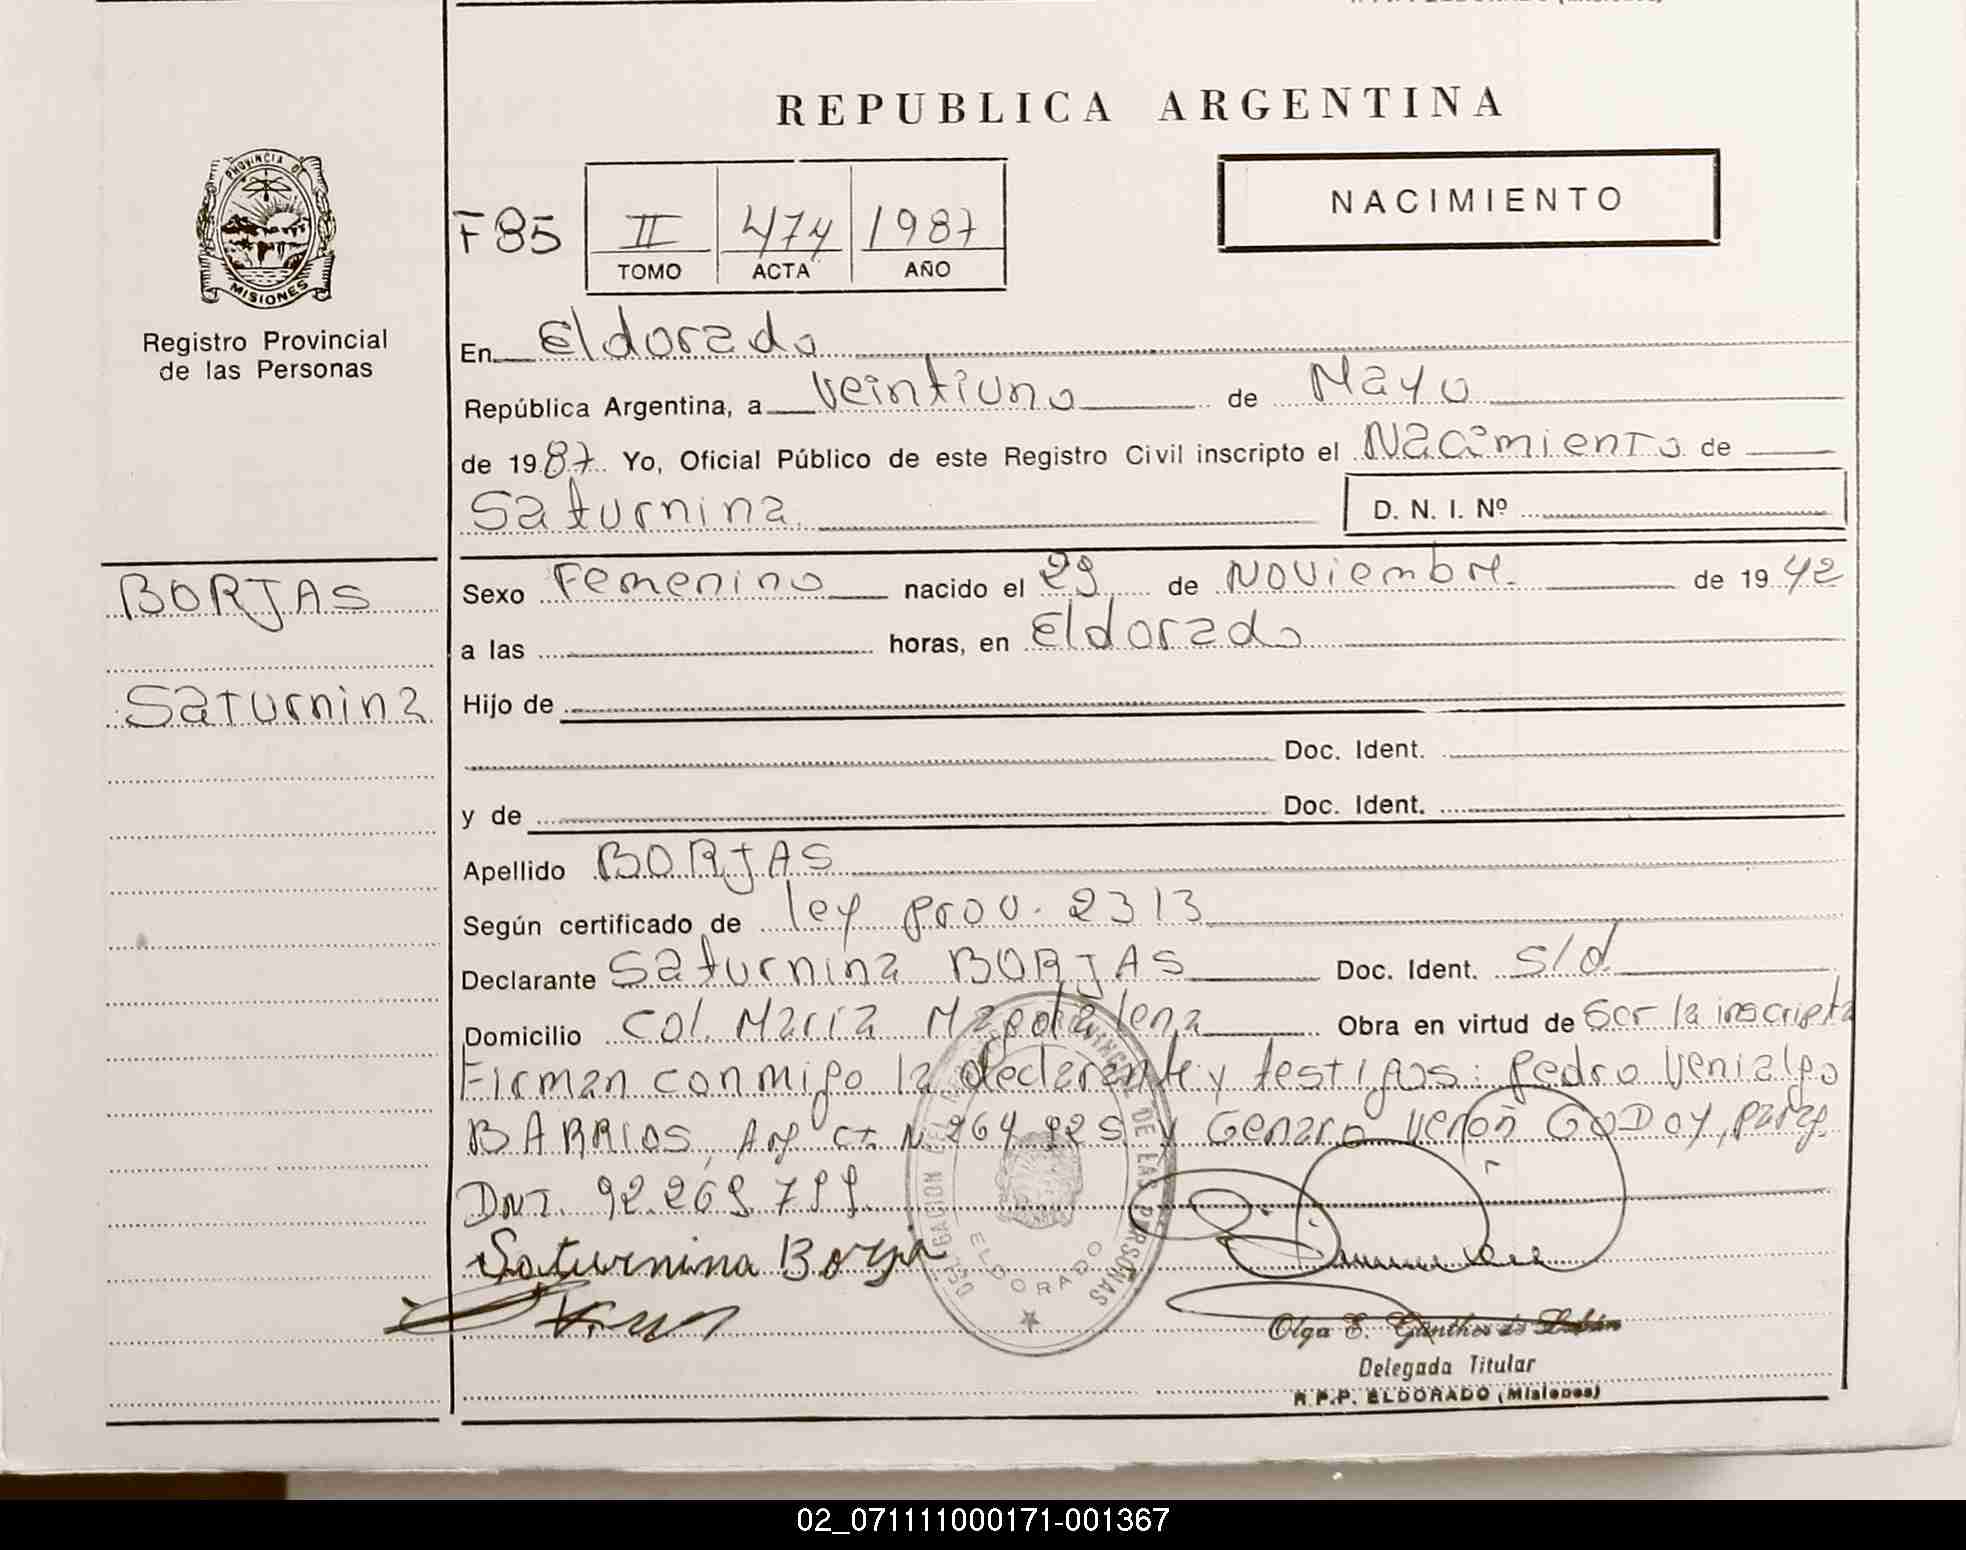 REPUBLICA ARGENTINA
PROVINCIA DE
MISIONES
Registro Provincial
de las Personas
F85
II 474 1987
TOMO ACTA AÑO
NACIMIENTO
En Eldorado
República Argentina, a Veintiuno de Mayo
de 1987 Yo, Oficial Público de este Registro Civil inscripto el Nacimiento de
Saturnina
D. N. I. Nº
BORJAS
Saturnina
Sexo Femenino nacido el 29 de Noviembre de 1942
a las horas, en Eldorado
Hijo de
Doc. Ident.
y de Doc. Ident.
Apellido BORJAS
Según certificado de ley prov. 2313
Declarante Saturnina BORJAS Doc. Ident. s/d
Domicilio Col. Maria Magdalena Obra en virtud de Ser la inscripta
Firman conmigo la declarante y testigos: Pedro Venialgo
BARRIOS, Arg ct N 264 925 y Genaro Verón GODOY, parag.
DNI. 92.269.799
Saturnina Borja
DE LAS PERSONAS
ELDORADO
Olga E. Günther de
Delegada Titular
R.P.P. ELDORADO (Misiones)
02_071111000171-001367